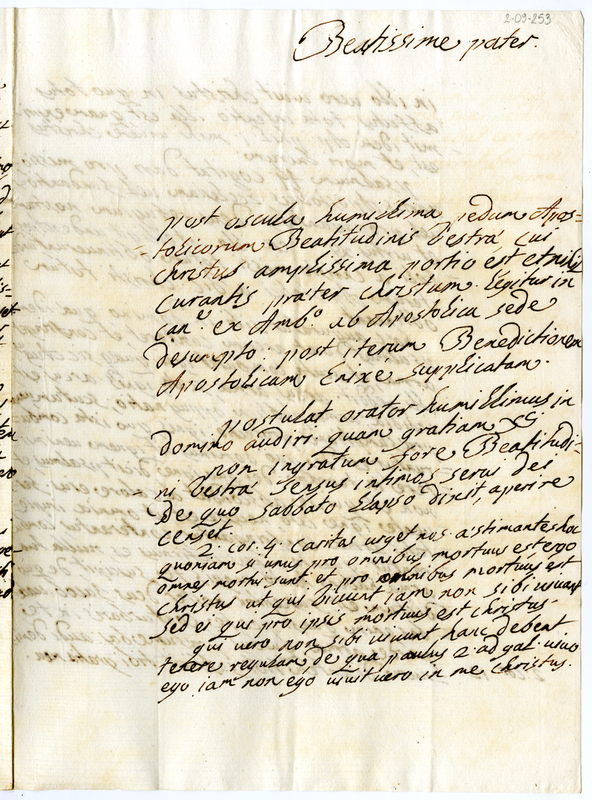 2-09-253
Beatissime pater.
post oscula humillima pedum Apos=
tolicorum Beatitudinis Vestrae cui
christus amplissima portio est et nihil
curantis praeter christum. legitur in
can.º ex Amb.º ab Apostolica sede
desumpto: post iterum Benedictionem
Apostolicam Enixé supplicatam.
postulat orator humillimus in
domino audiri. quam gratiam
non ingratum fore Beatitudi=
ni Vestrae sensus intimos servus dei
de quo sabbato elapso dixit, aperire
censet.
2. cor. 4. caritas urget nos aestimantes hoc
quoniam si unus pro omnibus mortuus est ergo
omnes mortui sunt. et pro omnibus mortuus est
christus ut qui vivunt jam non sibi vivant
sed ei qui pro ipsis mortuus est christus.
qui vero non sibi vivunt hanc debent
tenere regulam de qua paulus 2. ad gal. vivo
ego jam non ego vivit vero in me christus.